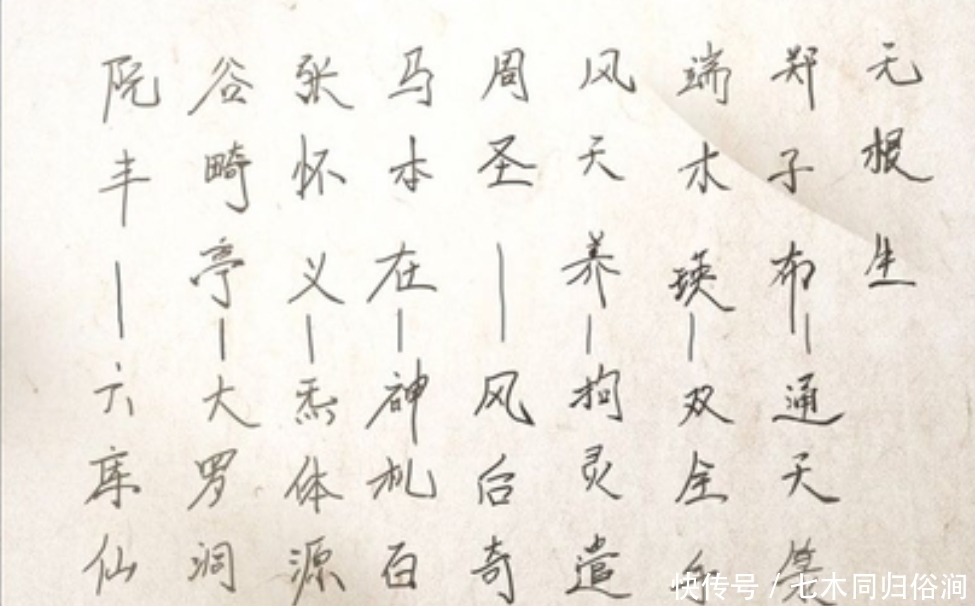 无根生
郑子布—通天
端木瑛—双全
风天养—拘灵遣
周圣—风后奇
马本在—神机百
张怀义—炁体源
谷畸亭—大罗洞
阮丰—六库仙
快传号 / 七木同归俗涧